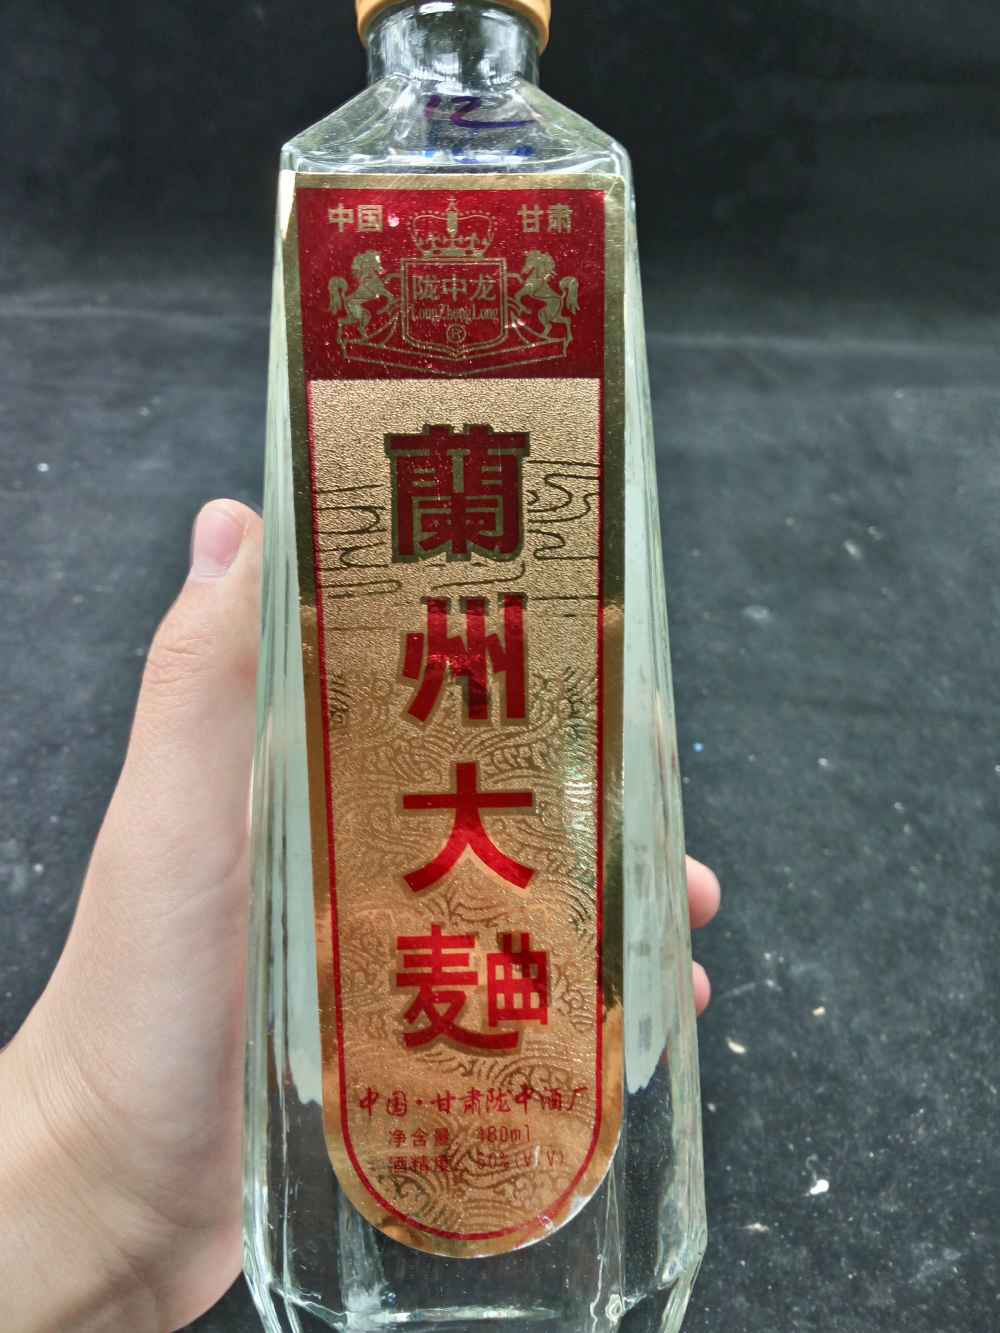 中国·甘肃
陇中龙
LongZhongLong
®
蘭州大麯
中国·甘肃陇中酒厂
净含量：480ml
酒精度：50%(V/V)